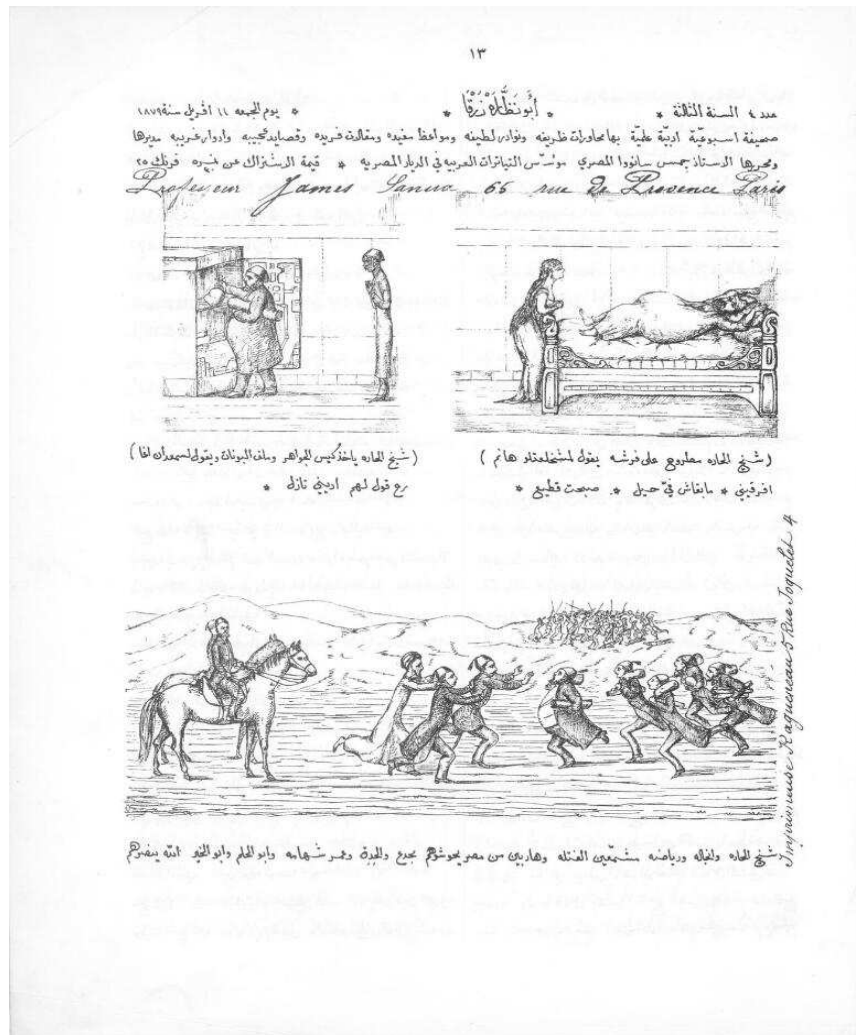 ١٣
عدد ٤ السنة الثالثة * أبو نظّارة زرقا * يوم الجمعه ١١ افريل سنة ١٨٧٩
صحيفة اسبوعيّة ادبيّة علميّة بها محاورات ظريفه ونوادر لطيفه ومواعظ مفيده ومقالات فريده وقصايد عجيبه وادوار غريبه مديرها
ومحررها الاستاذ جمس سانووا المصري مؤسّس التياترات العربيه في الديار المصريه * قيمة الاشتراك عن سنه فرنك ٢٥
Professeur James Sanua 65 rue de Provence Paris
(شيخ الحاره مطروح على فرشه يقول هانم)
افرقيني * مابقاش فيّ حيل * صبحت قطيع *
(شيخ الحاره ياخذ كيس الجواهر وملف البونات ويقول اغا)
رح قول لهم اديني نازل *
شيخ الحاره والخباله ورياضه مشمّعين الفتله وهاربين من مصر يحوشوهم جدع والجدق وعمر شهامه وابو الحلم وابو الخير الله ينصرهم
Imprimerie Ragueneau 5 Rue Joquelet 4